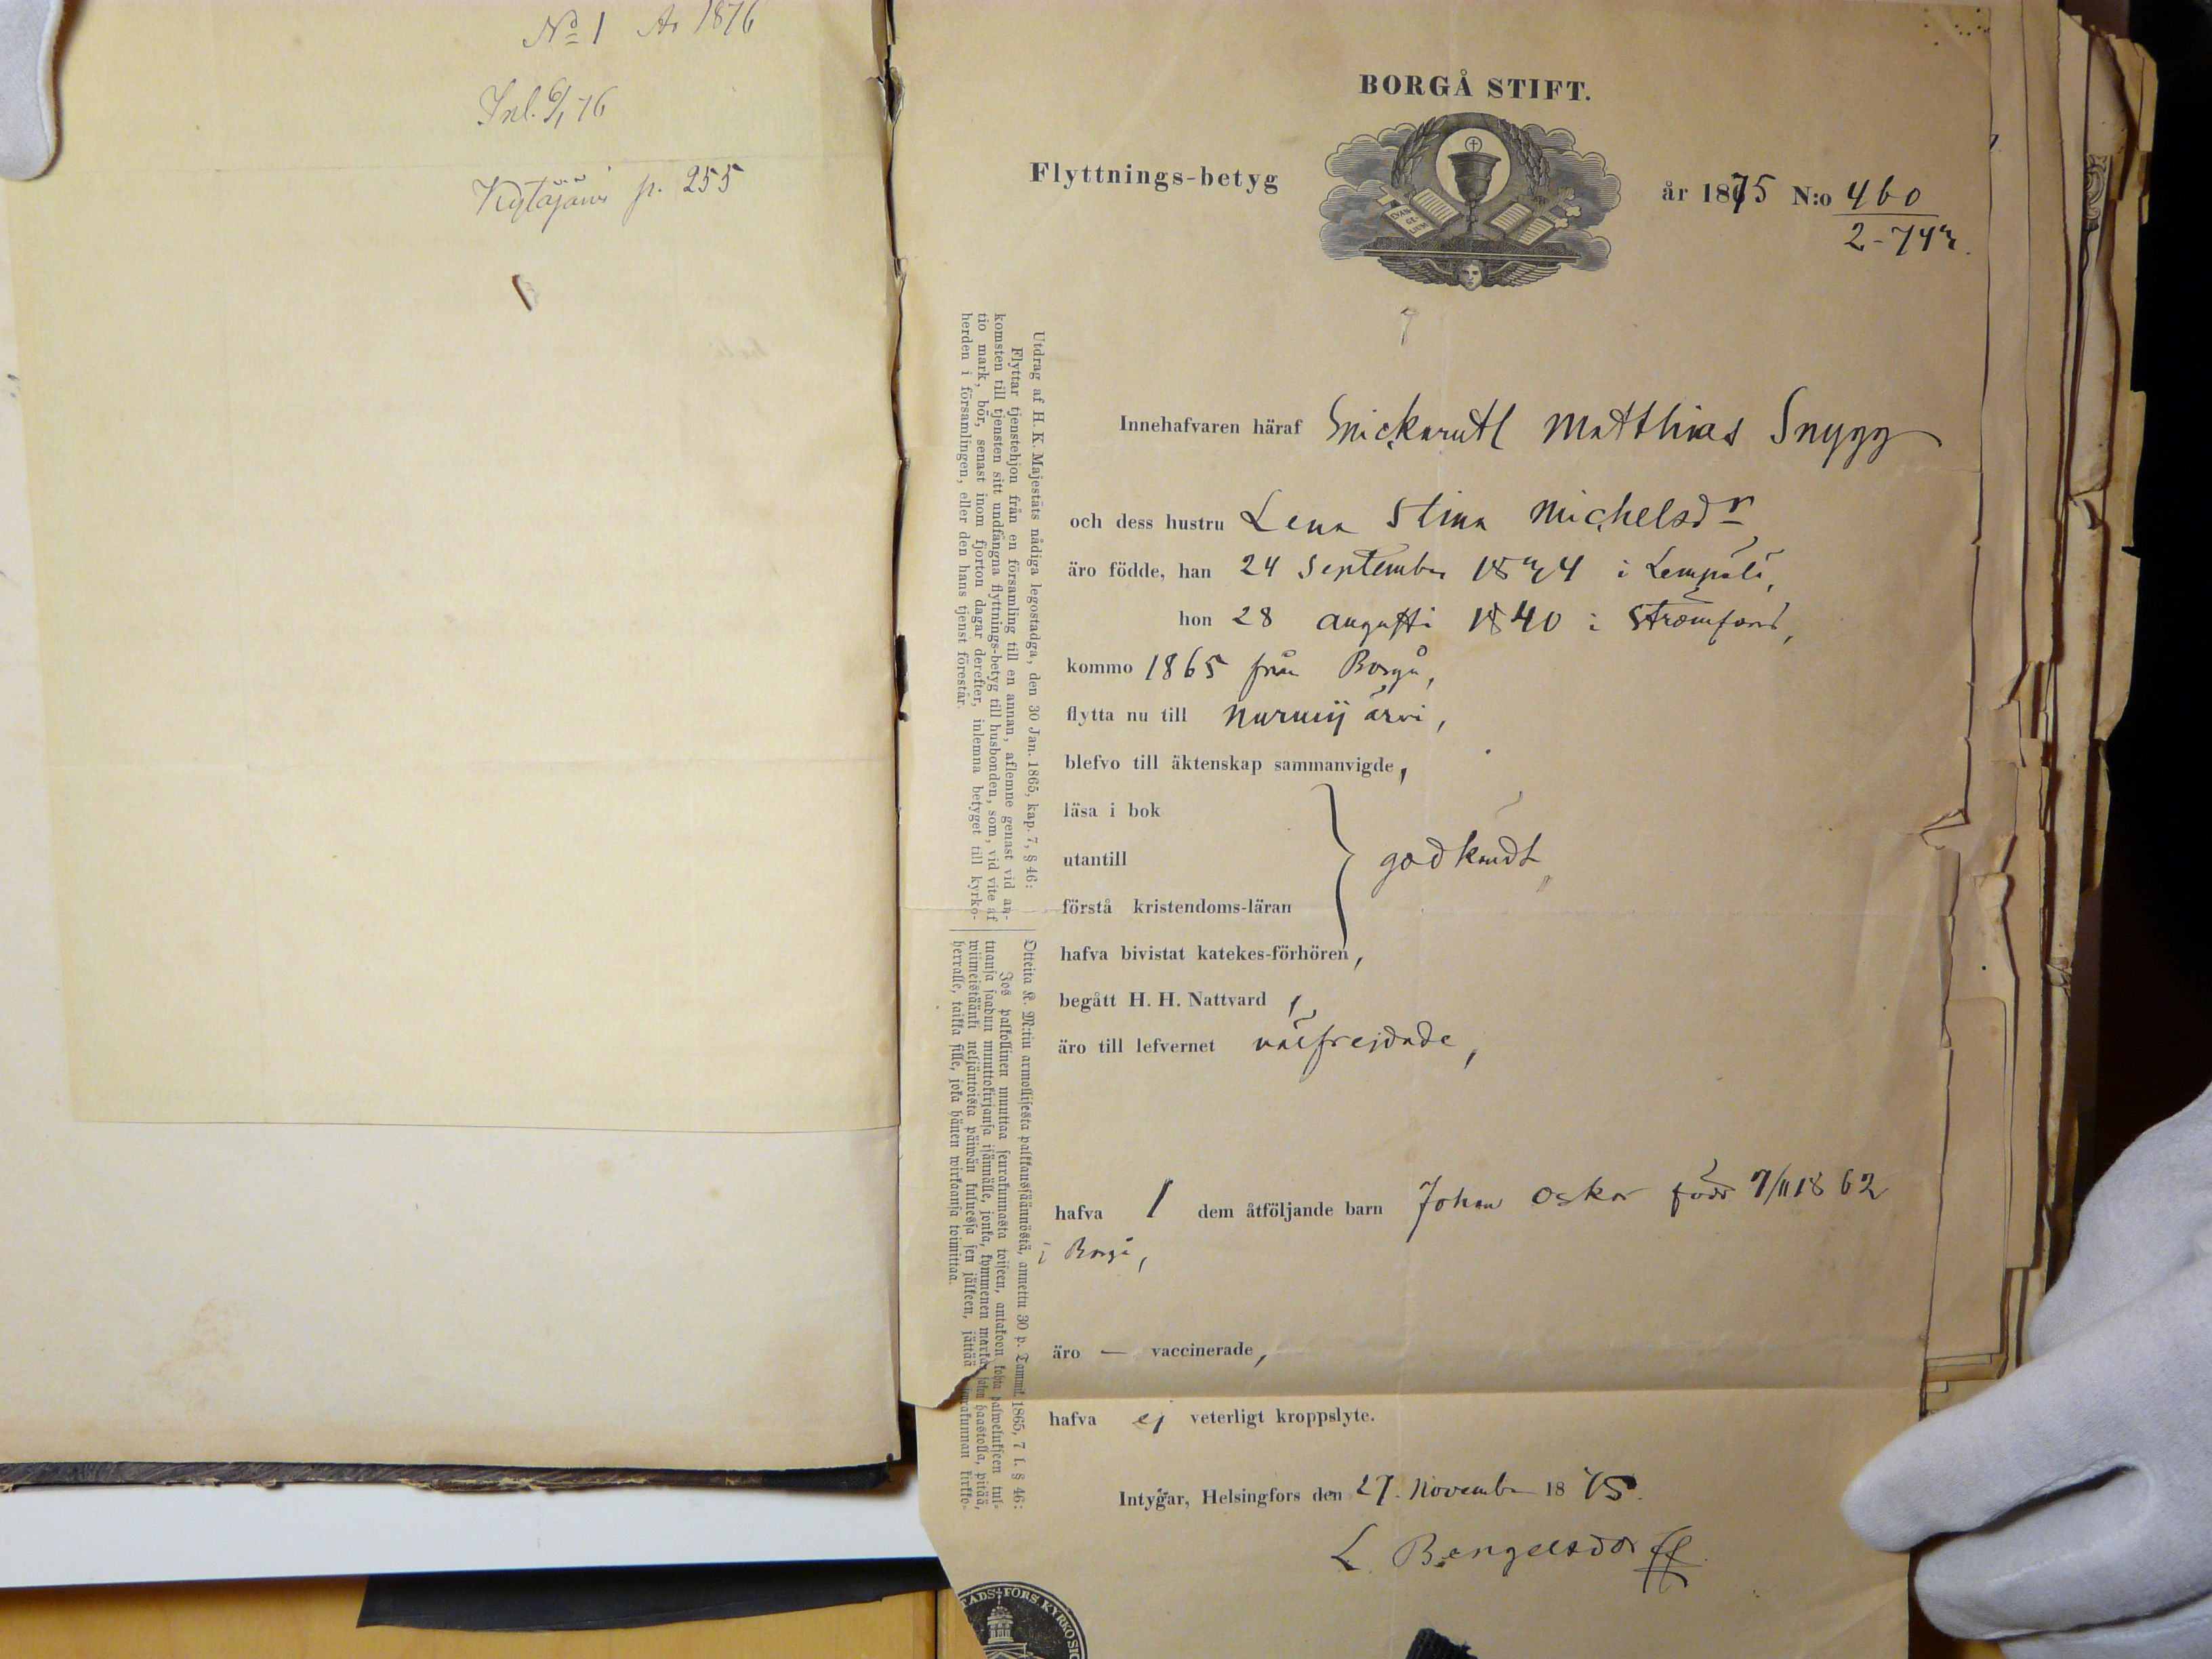 Nº 1 År 1876
Inl. 6/1 76
Kytäjärvi p. 255
BORGÅ STIFT.
Flyttnings-betyg
EVAN-
GE-
LIUM
år 1875 N:o 460
2-74
Innehafvaren häraf Snickarutl Matthias Snygg
och dess hustru Lena Stina Michelsdr
äro födde, han 24 September i Lempälä,
hon 28 augusti 1840 i Strömfors,
kommo 1865 från Borgå,
flytta nu till Nurmijärvi,
blefvo till äktenskap sammanvigde,
läsa i bok
utantill
godkändt
förstå kristendoms-läran
hafva bivistat katekes-förhören,
begått H. H. Nattvard,
äro till lefvernet välfrejdade,
hafva 1 dem åtföljande barn Johan Oskar född 7/11 1862
i Borgå,
äro — vaccinerade,
hafva ej veterligt kroppslyte.
Intygar, Helsingfors den 27 November 1875.
L. Bengelsdorff
Utdrag af H. K. Majestäts nådiga legostadga, den 30 Jan. 1865, kap. 7, § 46:
Flyttar tjenstehjon från en församling till en annan, aflemne genast vid an-
komsten till tjensten sitt undfångna flyttnings-betyg till husbonden, som, vid vite af
tio mark, bör, senast inom fjorton dagar derefter, inlemna betyget till kyrko-
herden i församlingen, eller den hans tjenst förestår.
Otteita K. M:tin armollisesta palkkaussäännöstä, annettu 30 p. Tammik. 1865, 7 l. § 46:
Jos palkollinen muuttaa seurakunnasta toiseen, antakoon kohta palwelukseen tul-
tuansa saadun muuttokirjansa isännälle, jonka, kymmenen markan sakon haastolla, pitää,
wiimeistäänki neljäntoista päiwän kuluessa sen jälkeen, jättää seurakunnan kirkko-
herralle, taikka sille, joka hänen wirkaansa toimittaa.
STADS FÖRS. KYRKO